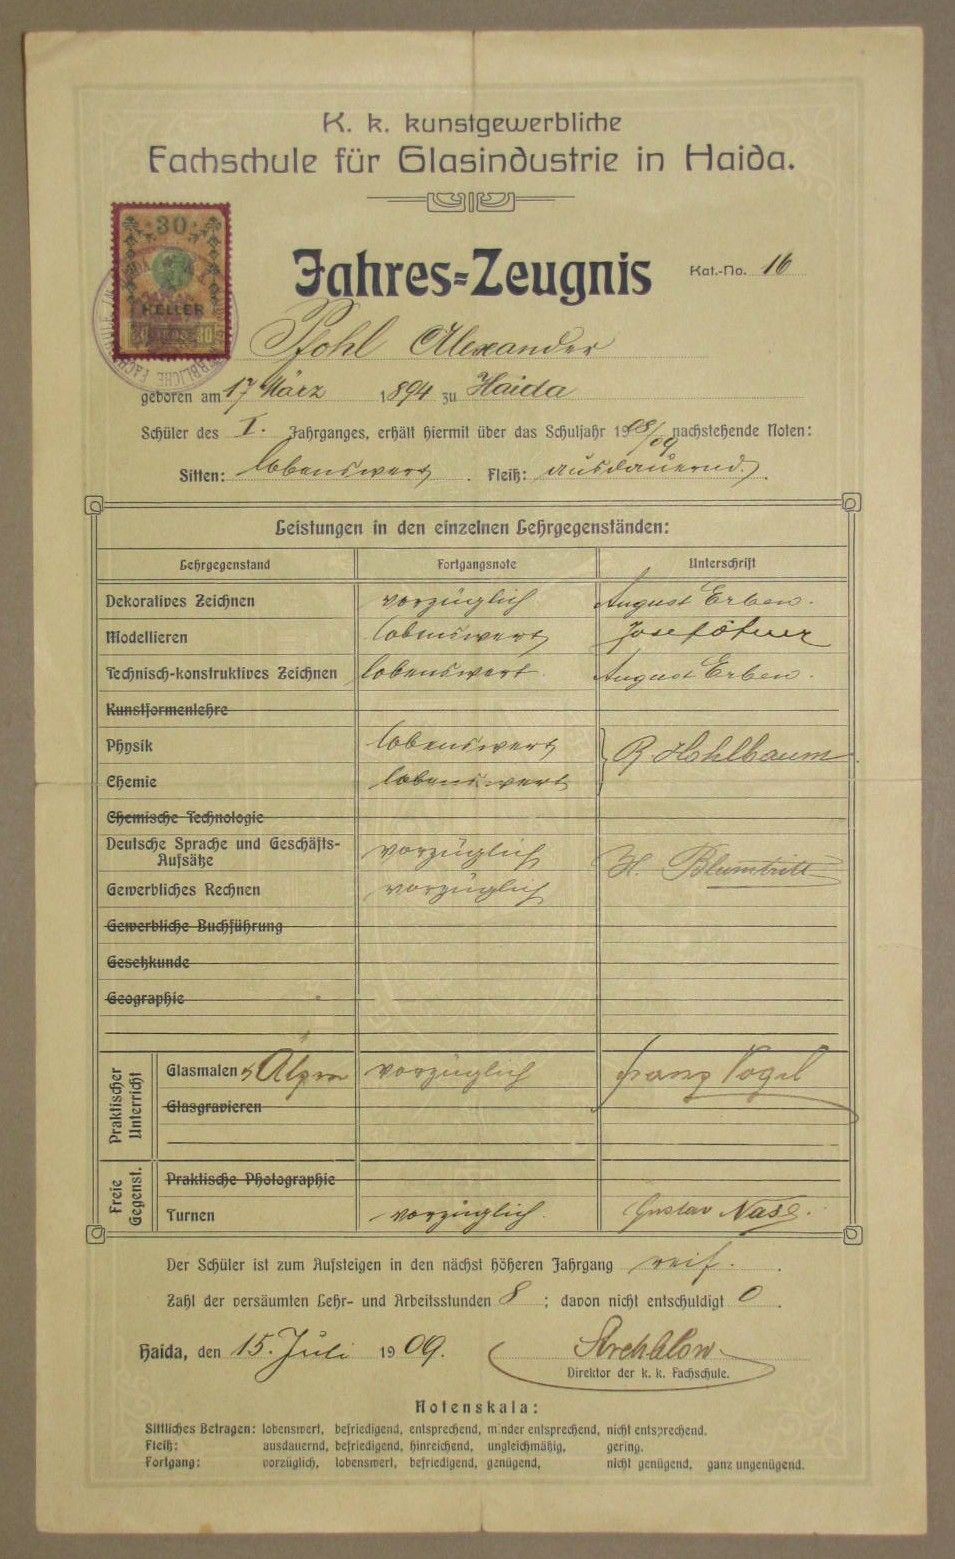 K. k. kunstgewerbliche
Fachschule für Glasindustrie in Haida.
30
HELLER
Jahres=Zeugnis Kat.-No. 16
Pfohl Alexander
geboren am 17 März 1894 zu Haida
Schüler des I. Jahrganges, erhält hiermit über das Schuljahr 1908/09 nachstehende Noten:
Sitten: lobenswert. Fleiß: ausdauernd.
Leistungen in den einzelnen Lehrgegenständen:
Lehrgegenstand Fortgangsnote Unterschrift
Dekoratives Zeichnen vorzüglich August Erben.
Modellieren lobenswert Josef
Technisch-konstruktives Zeichnen lobenswert August Erben.
Kunstformenlehre
Physik lobenswert R Hohlbaum
Chemie lobenswert
Chemische Technologie
Deutsche Sprache und Geschäfts-
Aufsätze vorzüglich H. Blumtritt
Gewerbliches Rechnen vorzüglich
Gewerbliche Buchführung
Gesetzkunde
Geographie
Praktischer Unterricht
Glasmalen & Ätzen vorzüglich Franz Vogel
Glasgravieren
Freie Gegenst.
Praktische Photographie
Turnen vorzüglich Gustav Nase.
Der Schüler ist zum Aufsteigen in den nächst höheren Jahrgang reif.
Zahl der versäumten Lehr- und Arbeitsstunden 8; davon nicht entschuldigt 0.
Haida, den 15. Juli 1909.
Direktor der k. k. Fachschule.
Notenskala:
Sittliches Betragen: lobenswert, befriedigend, entsprechend, minder entsprechend, nicht entsprechend.
Fleiß: ausdauernd, befriedigend, hinreichend, ungleichmäßig, gering.
Fortgang: vorzüglich, lobenswert, befriedigend, genügend, nicht genügend, ganz ungenügend.